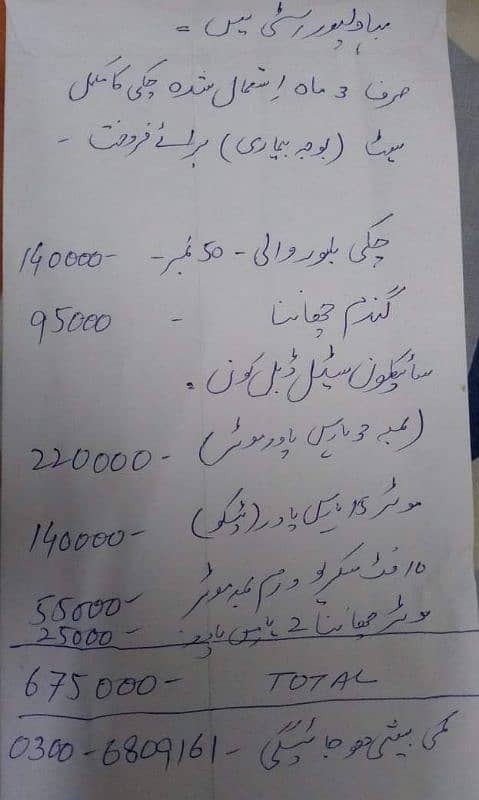 بہاولپور سٹی میں =
صرف 3 ماہ استعمال شدہ چکی کا مکمل
سیٹ (بوجہ بیماری) برائے فروخت -
چکی بلور والی - 50 نمبر - 140000-
گندم چھاننا - 95000
سائیکلون سٹیل ڈبل کون .
(بمعہ 3 ہارس پاور موٹر) - 220000-
موٹر 15 ہارس پاور (پیکو) 140000-
10 فٹ سکرو ورم بمعہ موٹر 55000-
موٹر چھاننا 2 ہارس پاور 25000-
675000- TOTAL
کمی بیشی ہو جائیگی - 0300-6809161